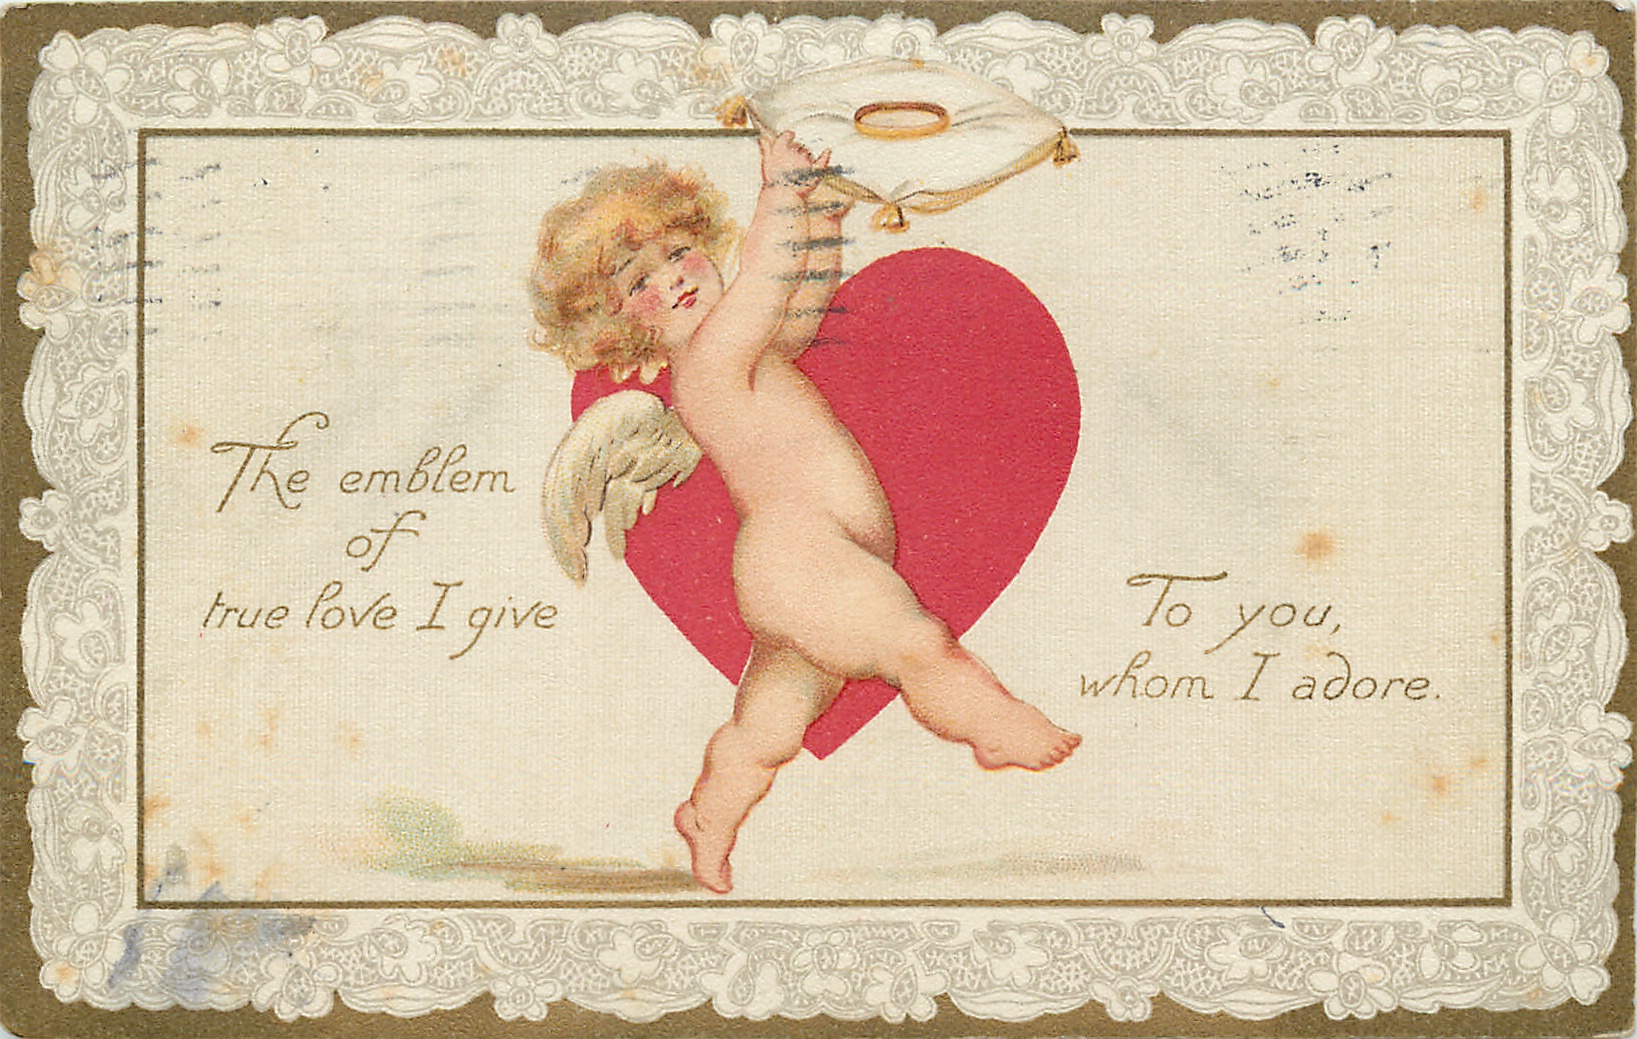 The emblem
of
true love I give
To you,
whom I adore.